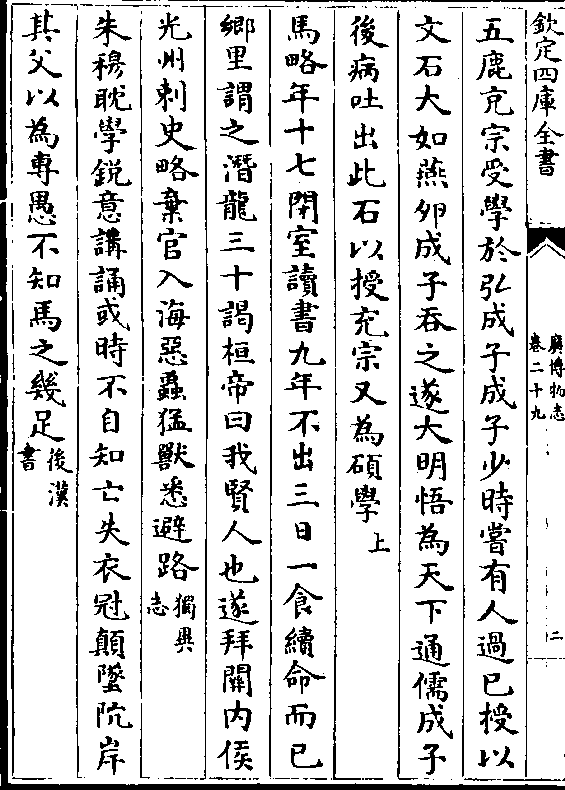 欽定四庫全書
廣博物志
卷二十九
二
五鹿充宗受學於弘成子成子少時嘗有人過已授以
文石大如燕卵成子吞之遂大明悟為天下通儒成子
後病吐出此石以授充宗又為碩學上
馬略年十七閉室讀書九年不出三日一食續命而已
鄉里謂之潛龍三十謁桓帝曰我賢人也遂拜關內侯
光州刺史略棄官入海惡蟲猛獸悉避路獨異志
朱穆耽學鋭意講誦或時不自知亡失衣冠顛墜阬岸
其父以為專愚不知馬之幾足後漢書